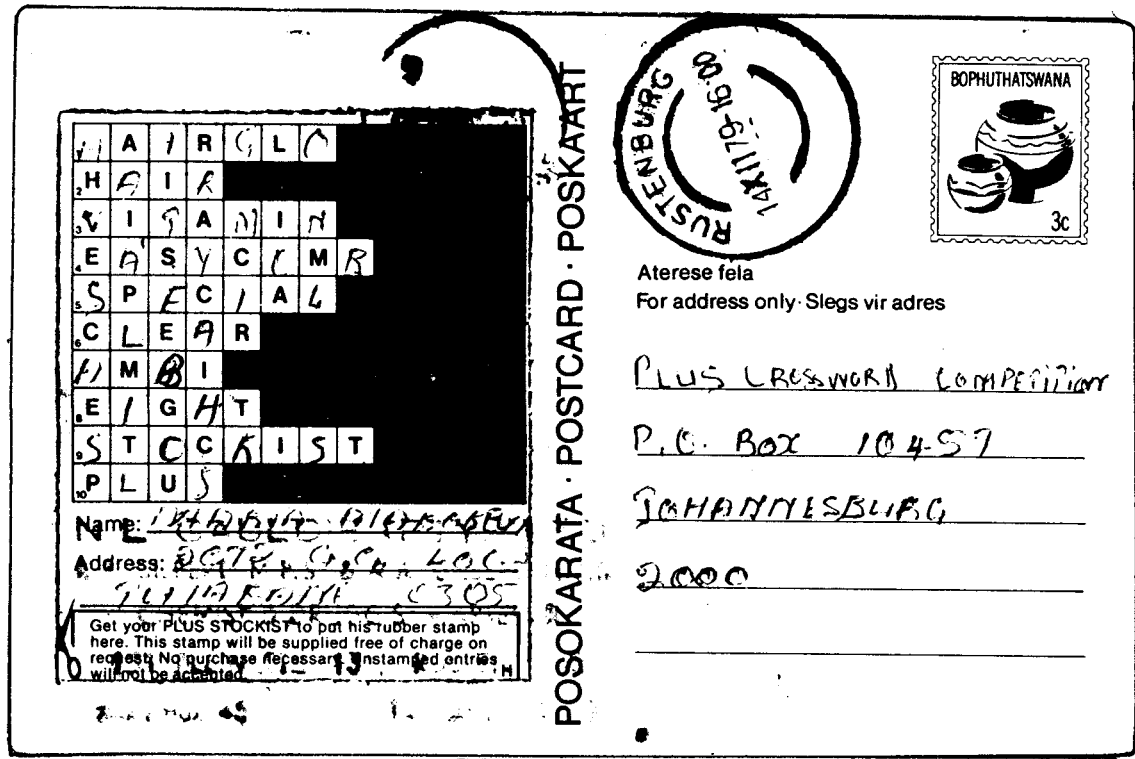 HAIRGLO
2 HAIR
3 VITAMIN
4 EASYCOMB
5 SPECIAL
6 CLEAR
HMBI
8 EIGHT
9 STOCKIST
10 PLUS
Name:
Address: LOC
0305
Get your PLUS STOCKIST to put his rubber stamp
here. This stamp will be supplied free of charge on
request. No purchase necessary. Unstamped entries
will not be accepted.
H
POSOKARATA · POSTCARD · POSKAART
RUSTENBURG
14XII79-16:00
BOPHUTHATSWANA
3c
Aterese fela
For address only · Slegs vir adres
PLUS CROSSWORD COMPETITION
P.O. BOX 10457
JOHANNESBURG
2000